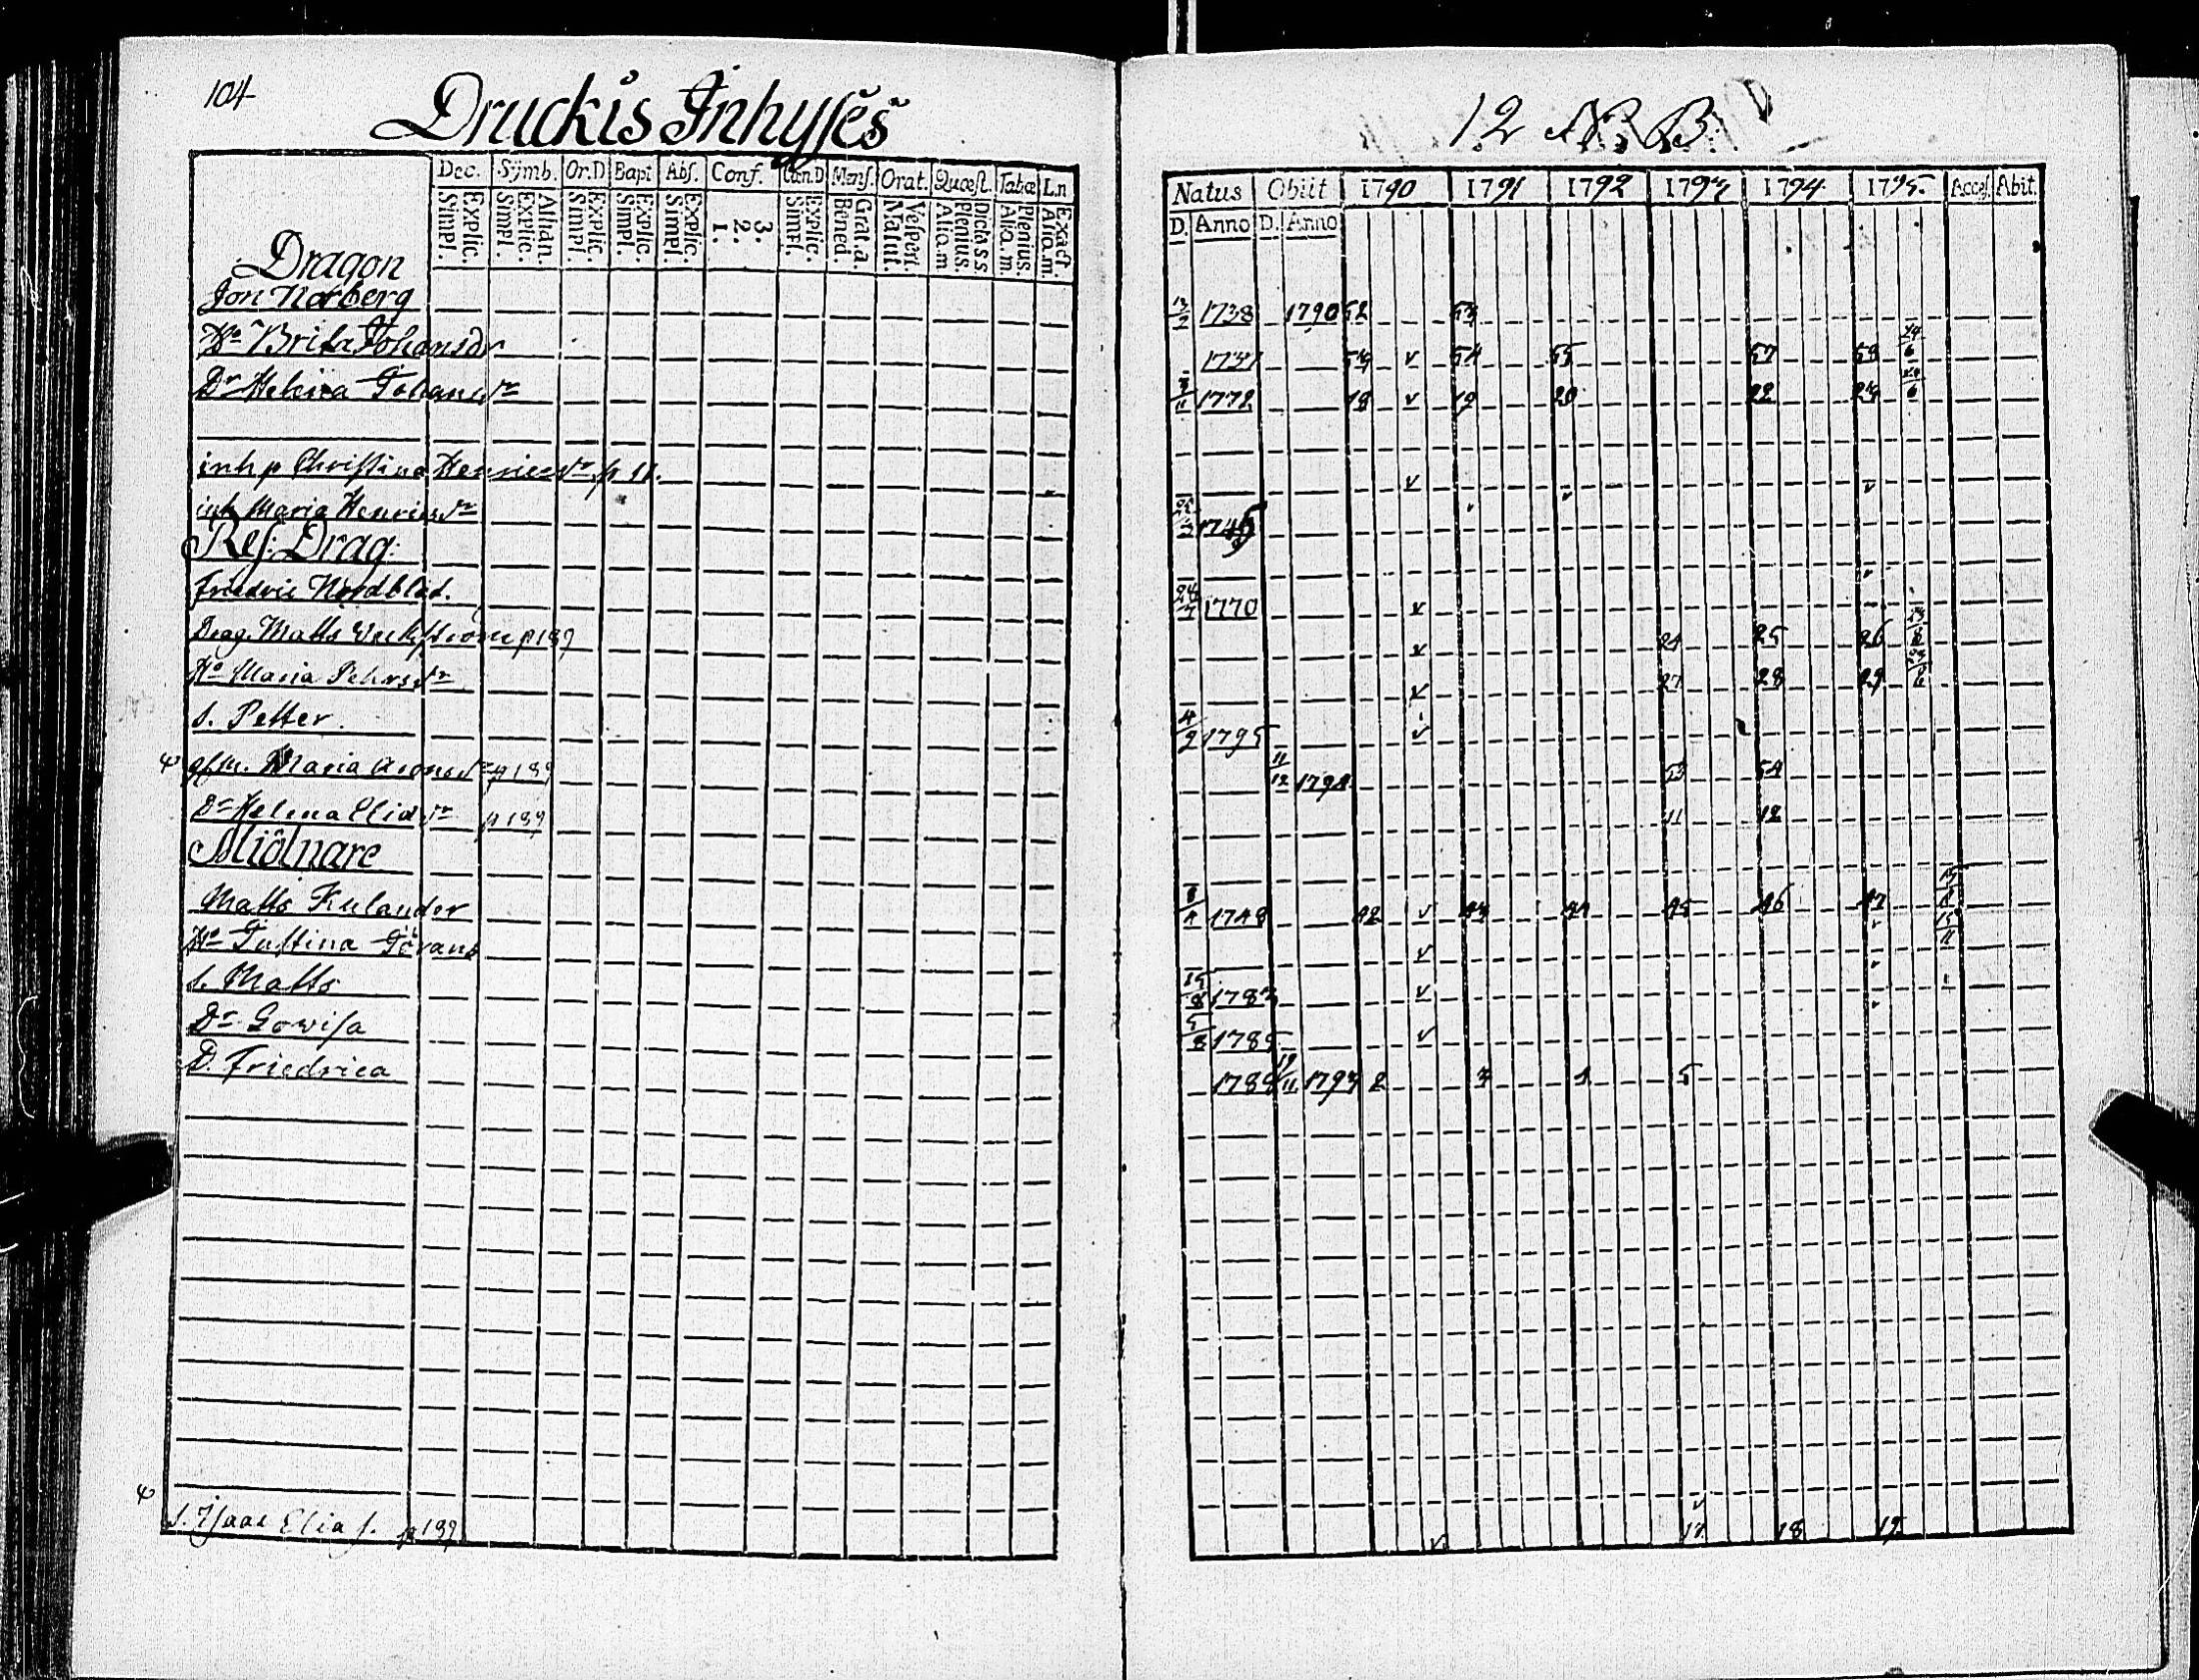 104
Druckis Inhyses
Dec. Symb. Or.D Bapt Abs. Conf. Can.D Mens. Orat. Quæst. Tabæ L.n
Explic. Simpl. Athan. Explic. Simpl. Explic. Simpl. Explic. Simpl. Explic. Simpl. 3. 2. 1. Explic. Simpl. Grat.a. Bened. Vespert. Natut. Dicta S.S. Plenius. Alia.m Plenius. Alia.m. Exact. Alia.m.
Dragon
Jon Norberg
Ho Brita Johansdr
Dr Helena Johansdr
inh p Christina Henricsdr p 11.
inh Maria Henricsdr
Res. Drag:
Friedric Nordblad.
Drag. Matts p 189
Ho Maria Pehrsdr
s. Petter.
Maria Aronsdr p 189
Dr Helena Eliædr p 189
Miölnare
Matts Kulander
Ho Justina Görans
s. Matts
Dr Lowisa
D. Friedrica
s. Isaac Elias s. p 189
12 N B
Natus Obiit 1790 1791 1792 1793 1794 1795 Acces. Abit.
D. Anno D. Anno
1738 1790 52 53
1737 53 v 54 55 57 58
1772 18 v 19 20 22 23
v v
1745
24/7 1770 v
v 24 25 26
v 27 28 29
4/2 1795 v
11/12 1794 53 54
11 12
1748 42 v 43 44 45 46 47
v
1783 v
1785 v
1788 19/11 1793 2 3 4 5
v 17 18 19